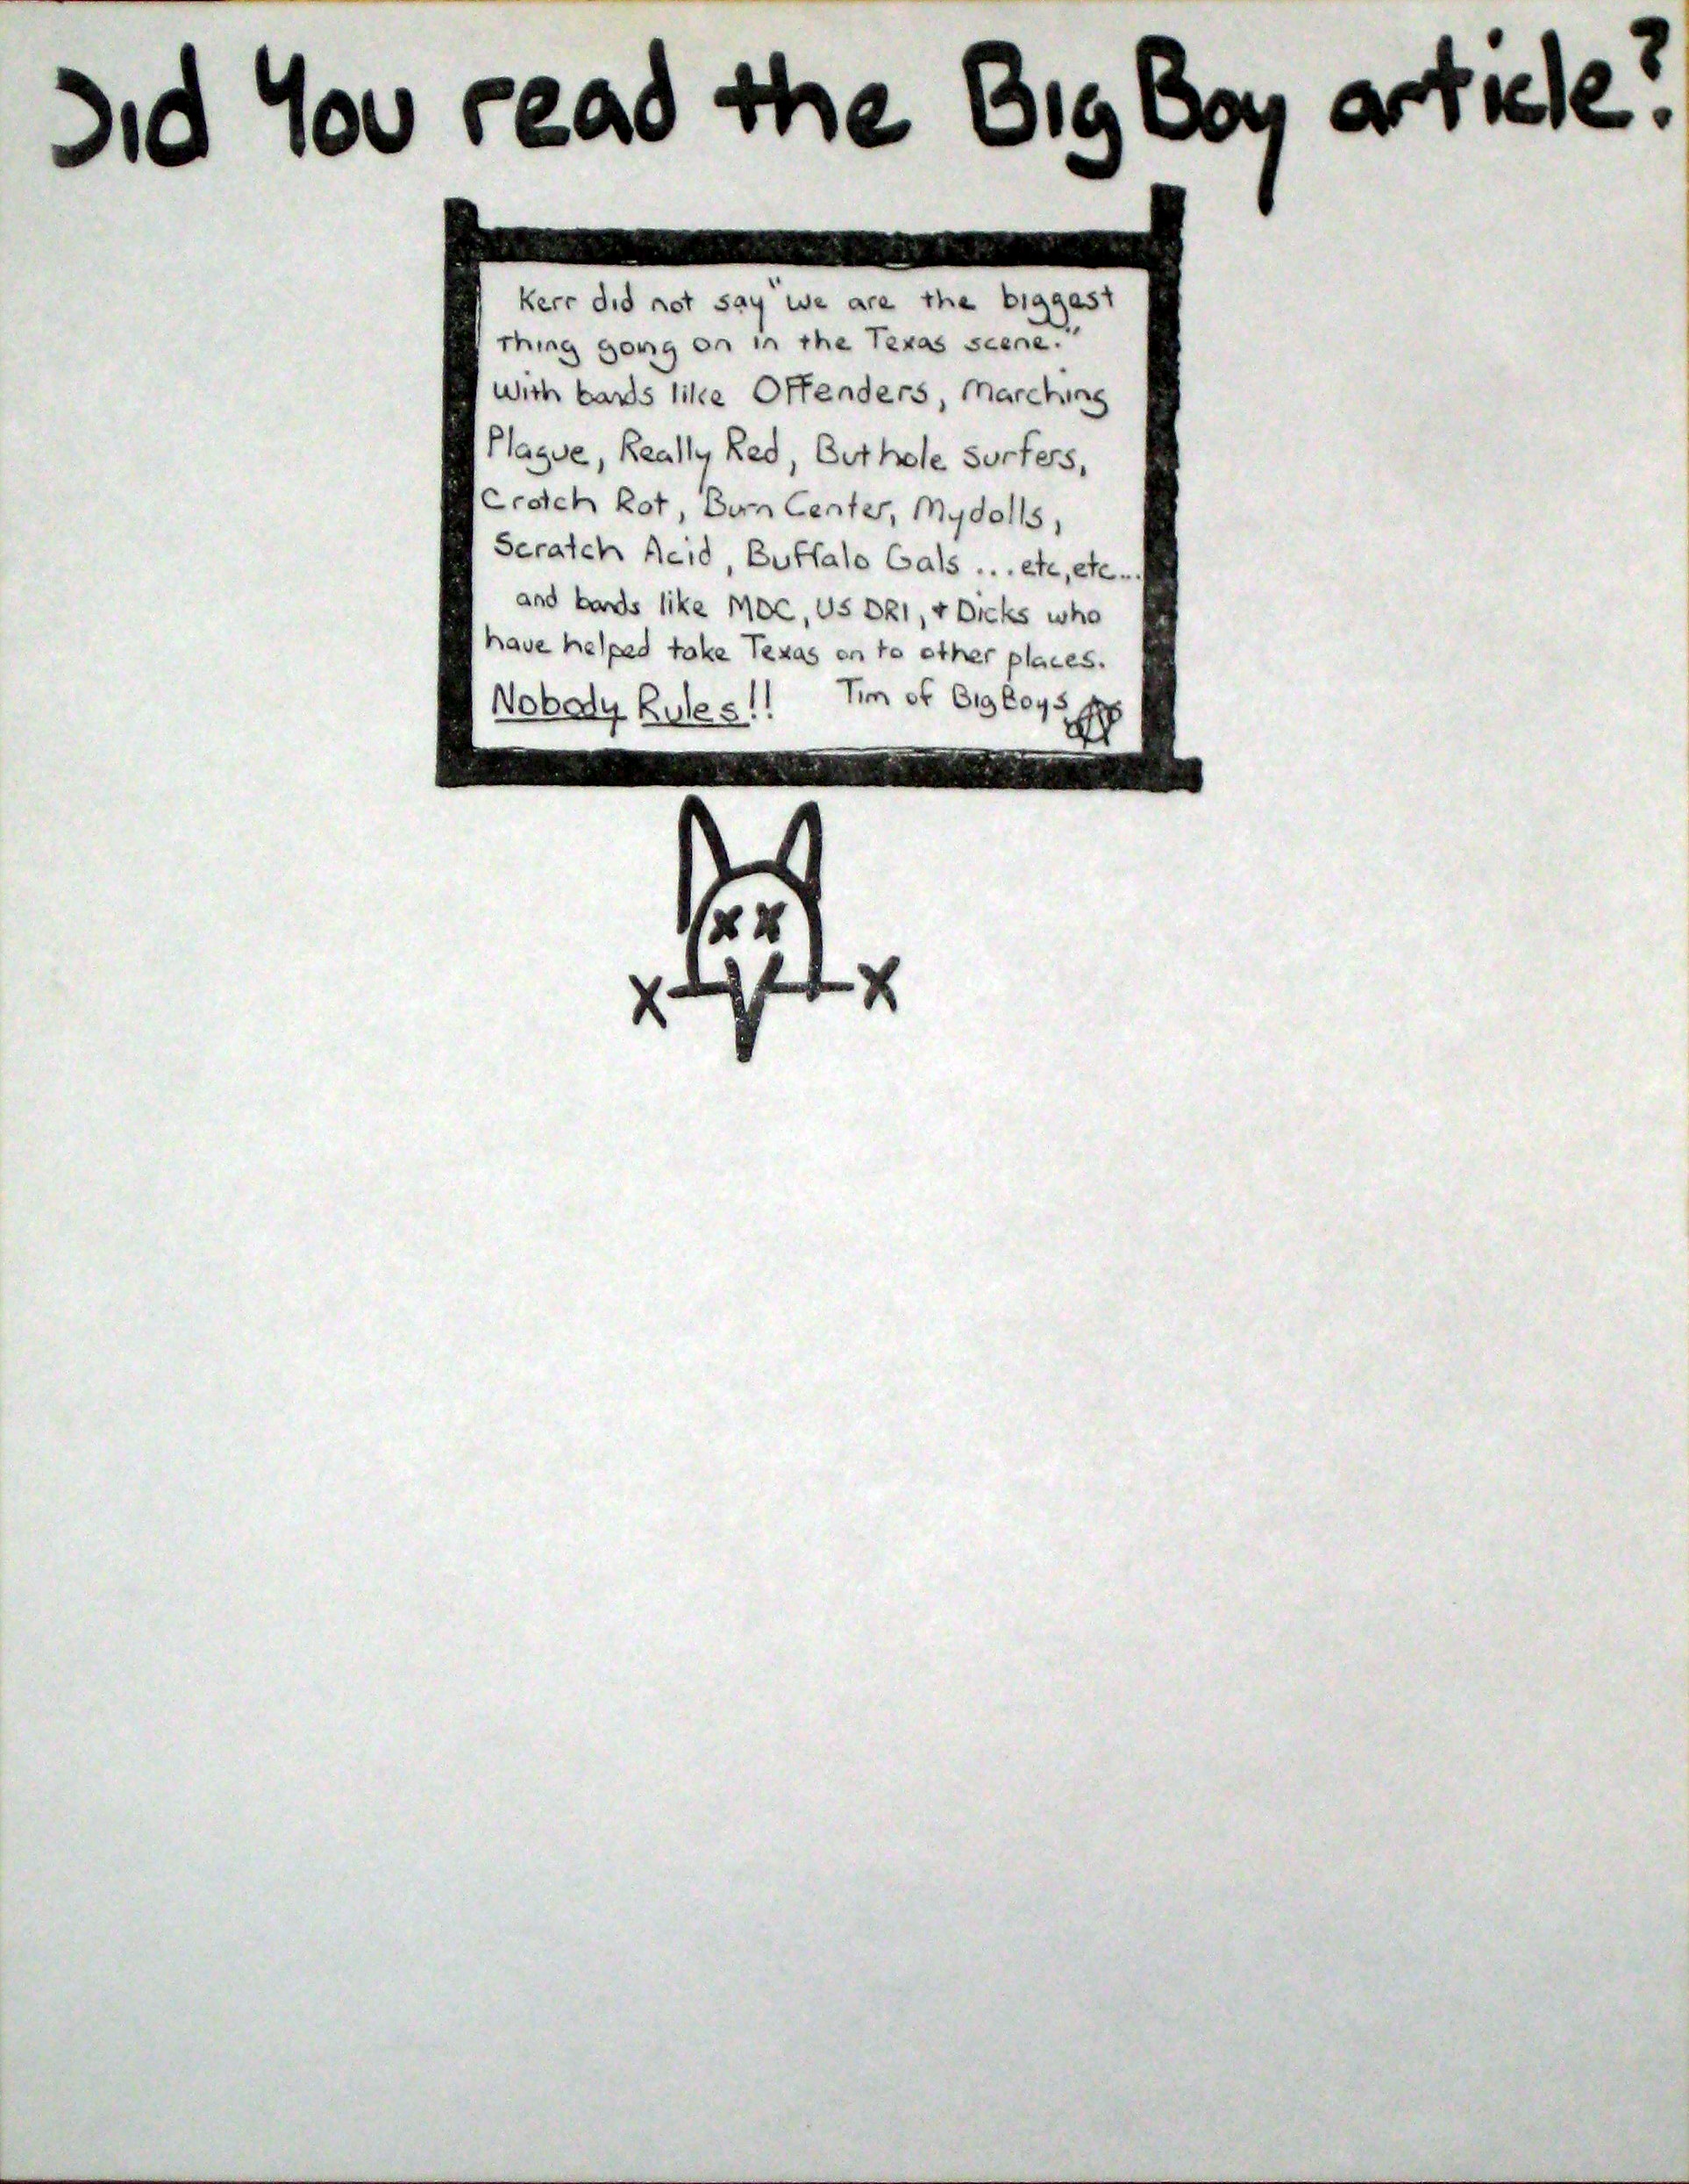 Did You read the Big Boy article?
Kerr did not say "we are the biggest
thing going on in the Texas scene."
With bands like Offenders, Marching
Plague, Really Red, Buthole Surfers,
Crotch Rot, Burn Center, Mydolls,
Scratch Acid, Buffalo Gals ... etc, etc...
and bands like MDC, US DRI, + Dicks who
have helped take Texas on to other places.
Nobody Rules!! Tim of Big Boys
x x
X X